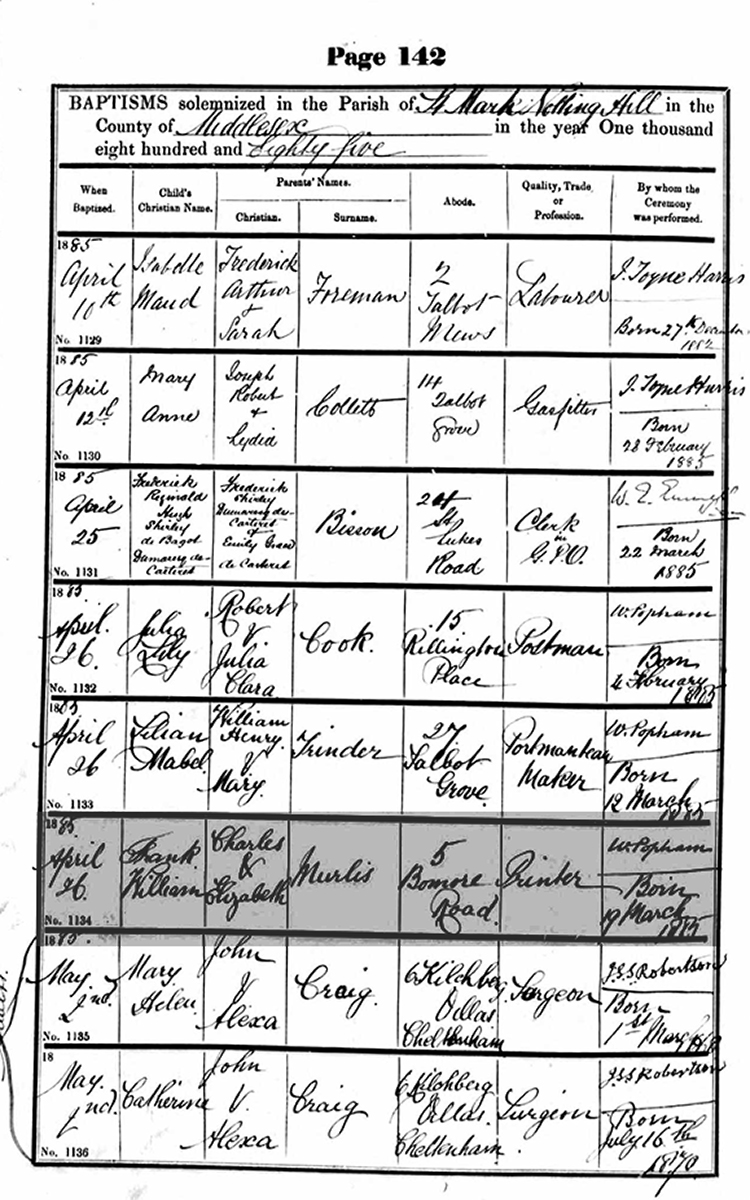 Page 142
BAPTISMS solemnized in the Parish of St Mark Notting Hill in the
County of Middlesex in the year One thousand
eight hundred and Eighty five
When Baptized.
Child's Christian Name.
Parents' Names.
Christian.
Surname.
Abode.
Quality, Trade or Profession.
By whom the Ceremony was performed.
1885
April
10th
No. 1129
Isabelle
Maud
Frederick
Arthur
&
Sarah
Foreman
2
Talbot
Mews
Labourer
J. Toyne Harris
Born 27th December
1882
1885
April
12th
No. 1130
Mary
Anne
Joseph
Robert
+
Lydia
Colletts
14
Talbot
Grove
Gasfitter
J. Toyne Harris
Born
28 February
1885
1885
April
25
No. 1131
Frederick
Reginald
Hugh
Shirley
de Bagot
Dumaresq de-
Carteret
Frederick
Shirley
Dumaresq de-
Carteret
&
Emily Grace
de Carteret
Bisson
24
St
Lukes
Road
Clerk
in
G.P.O.
W. E.
Born
22 March
1885
1885
April.
26.
No. 1132
Julia
Lily
Robert
&
Julia
Clara
Cook.
15
Rillington
Place
Postman
W. Popham
Born
4 February
1885
1885
April
26
No. 1133
Lilian
Mabel
William
Henry
&
Mary.
Trinder
27
Talbot
Grove.
Portmanteau
Maker
W. Popham
Born
12 March
1885
1885.
April
26.
No. 1134
Frank
William
Charles
&
Elizabeth
Murlis
5
Bomore
Road.
Printer
W. Popham
Born
19 March
1885
1885.
May.
2nd.
No. 1135
Mary
Helen.
John
&
Alexa
Craig.
6 Kilchberg
Villas.
Cheltenham
Surgeon
J.S.S. Robertson
Born
1st March
18
May.
2nd.
No. 1136
Catherine
John
&
Alexa
Craig
6 Kilchberg
Villas.
Cheltenham.
Surgeon
J.S.S. Robertson
Born
July 16th
1870